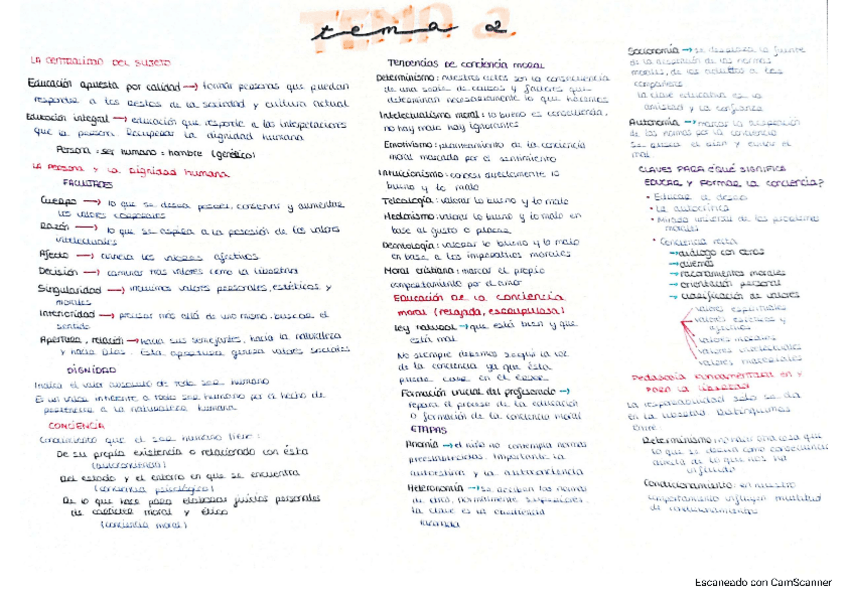 tema 2
LA CENTRALIDAD DEL SUJETO
Educación apuesta por calidad → formar personas que puedan
responder a los retos de la sociedad y cultura actual
Educación integral → educación que responde a las interpelaciones
que la person. Recuperar la dignidad humana
Persona = ser humano = hombre (genérico)
La persona y la dignidad humana
FACULTADES
Cuerpo → lo que se desea poseer, conservar y aumentar
los valores corporales
Razón → lo que se aspira a la posesión de los valores
intelectuales
Afecto → vivencia los valores afectivos
Decisión → caminar más valores como la libertad
Singularidad → incluimos valores personales, estéticos y
morales
Interioridad → pensar más allá de uno mismo. buscar el
sentido
Apertura, relación → hacia sus semejantes, hacia la naturaleza
y hacia Dios. Esta apertura genera valores sociales
DIGNIDAD
Indica el valor absoluto de todo ser humano
Es un valor inherente a todo ser humano por el hecho de
pertenecer a la naturaleza humana
CONCIENCIA
Conocimiento que el ser humano tiene:
De su propia existencia o relacionado con ésta
(autoconciencia)
Del estado y el entorno en que se encuentra
(conciencia psicológica)
De lo que hace para elaborar juicios personales
de carácter moral y ético
(conciencia moral)
Tendencias de conciencia moral
Determinismo: nuestros actos son la consecuencia
de una serie de causas y factores que
determinan necesariamente lo que hacemos
Intelectualismo moral: lo bueno es conocido,
no hay malo hay ignorantes
Emotivismo: planteamiento de la conciencia
moral marcado por el sentimiento
Intuicionismo: conoces directamente lo
bueno y lo malo
Teleología: valorar lo bueno y lo malo
Hedonismo: valorar lo bueno y lo malo en
base al gusto o placer
Deontología: valorar lo bueno y lo malo
en base a los imperativos morales
Moral cristiana: marcar el propio
comportamiento por el amor
Educación de la conciencia
moral (relajada, escrupulosa)
Ley natural → que está bien y que
está mal
No siempre debemos seguir la voz
de la conciencia ya que ésta
puede caer en el error
Formación inicial del profesorado →
repara el proceso de la educación
o formación de la conciencia moral
ETAPAS
Anomía → el niño no contempla normas
preestablecidas. Importante la
autoestima y la autoconciencia
Heteronomía → se reciben las normas
de otro, normalmente superiores.
La clave es la obediencia
Socionomía → se desplaza la fuente
de la aceptación de las normas
morales, de los adultos a los
compañeros
La clave educativa es la
amistad y la confianza
Autonomía → marcar la aceptación
de las normas por la conciencia
Se busca el bien y evitar el
mal
CLAVES PARA ¿QUÉ SIGNIFICA
EDUCAR Y FORMAR LA CONCIENCIA?
• Educar a deseo
• La autocrítica
• Mirada universal de los problemas
morales
• Conciencia recta
→ diálogo con otros
→ dilemas
→ razonamientos morales
→ orientación personal
→ clasificación de valores
valores espirituales
valores estéticos y
afectivos
valores morales
valores intelectuales
valores materiales
Pedagogía fundamentada en y
para la libertad
La responsabilidad solo se da
en la libertad. Distinguimos
entre:
Determinismo: no hago otra cosa que
lo que se desea como consecuencia
directa de lo que nos ha
influido
Condicionamiento: en nuestro
comportamiento influyen multitud
de condicionamientos
Escaneado con CamScanner